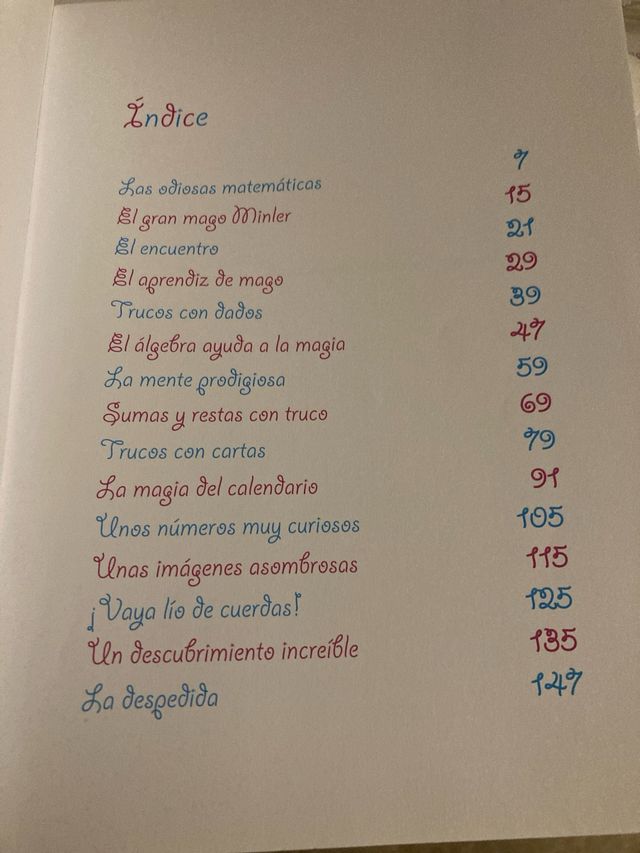 Índice
Las odiosas matemáticas 7
El gran mago Minler 15
El encuentro 21
El aprendiz de mago 29
Trucos con dados 39
El álgebra ayuda a la magia 47
La mente prodigiosa 59
Sumas y restas con truco 69
Trucos con cartas 79
La magia del calendario 91
Unos números muy curiosos 105
Unas imágenes asombrosas 115
¡Vaya lío de cuerdas! 125
Un descubrimiento increíble 135
La despedida 147